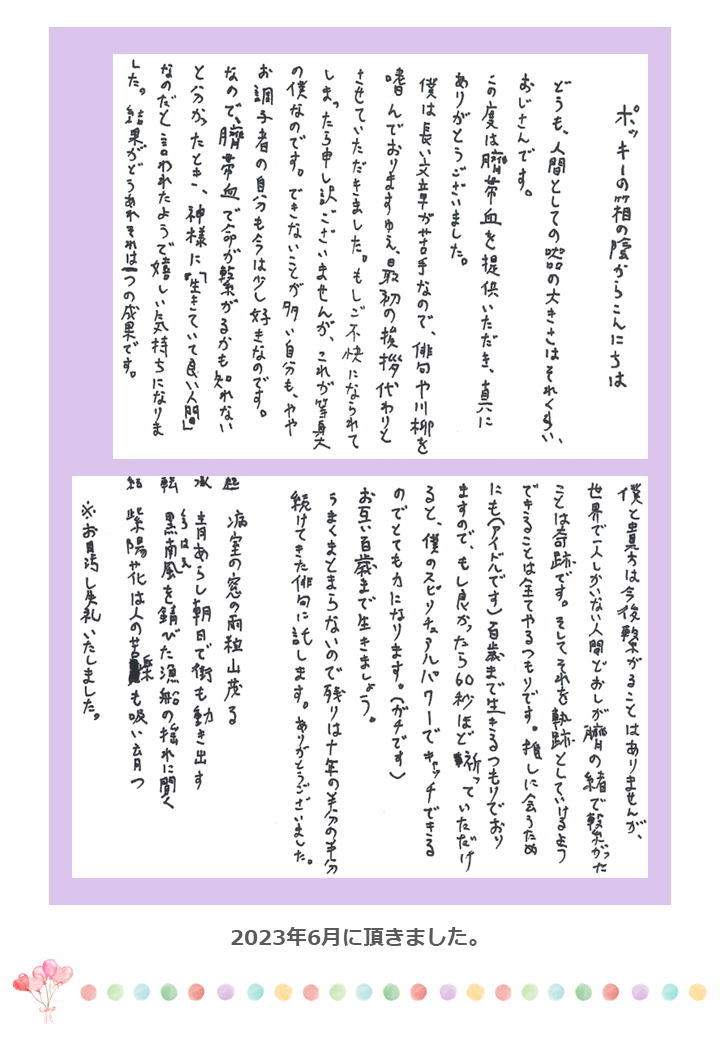 ポッキーの箱の陰からこんにちは
どうも、人間としての器の大きさはそれくらい、
おじさんです。
この度は臍帯血を提供いただき、真に
ありがとうございました。
僕は長い文章が苦手なので、俳句や川柳を
嗜んでおりますゆえ、最初の挨拶代わりと
させていただきました。もしご不快になられて
しまったら申し訳ございませんが、これが等身大
の僕なのです。できないことが多い自分も、やや
お調子者の自分も今は少し好きなのです。
なので、臍帯血で命が繋がるかも知れない
と分かったとき、神様に『生きていて良い人間』
なのだと言われたようで嬉しい気持ちになりま
した。結果がどうあれそれは一つの成果です。
僕と貴方は今後繋がることはありませんが、
世界で一人しかいない人間どおしが臍の緒で繋がった
ことは奇跡です。そしてそれを軌跡としていけるよう
できることは全てやるつもりです。推しに会うため
にも(アイドルです)百歳まで生きるつもりでおり
ますので、もし良かったら60秒ほど祈っていただけ
ると、僕のスピリチュアルパワーでキャッチできる
のでとても力になります。(ガチです)
お互い百歳まで生きましょう。
うまくまとまらないので残りは十年の半分の半分
続けてきた俳句に託します。ありがとうございました。
起 病室の窓の雨粒山茂る
承 青あらし朝日で街も動き出す
転 黒南風を錆びた漁船の揺れに聞く
くろはえ
結 紫陽花は人の苦楽も吸い育つ
※お目汚し失礼いたしました。
2023年6月に頂きました。